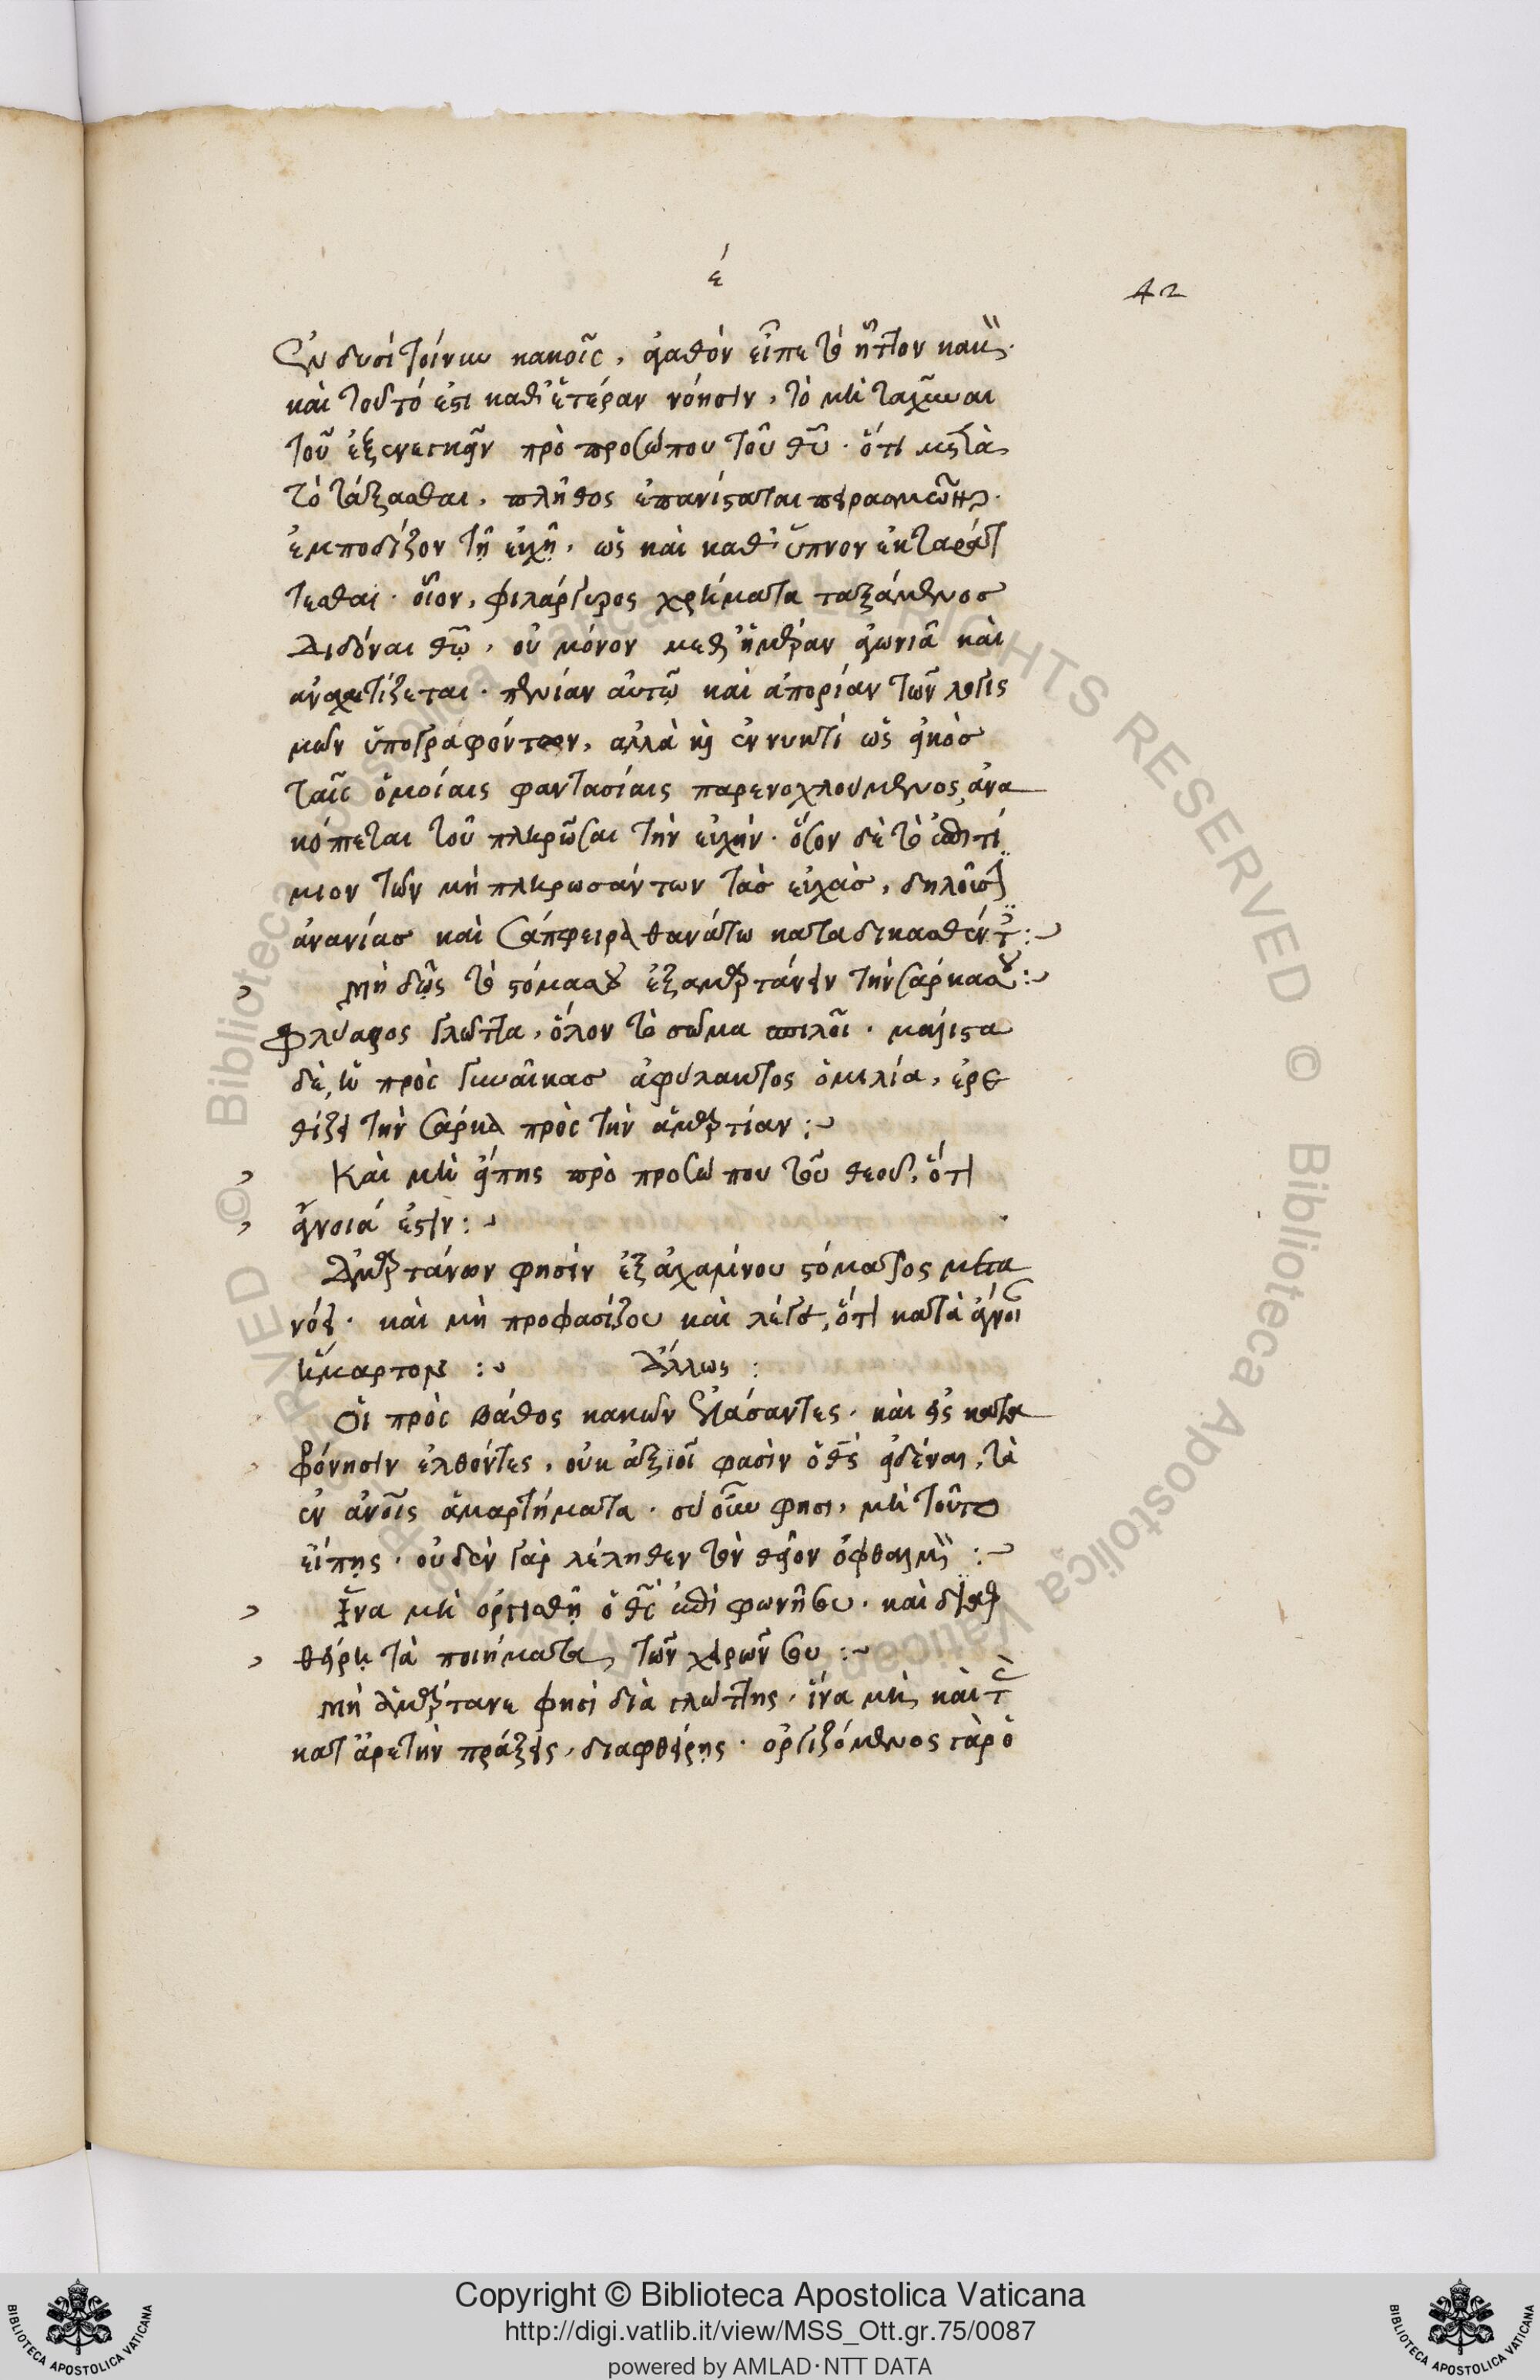 έ
42
Ἐν δυσὶ τοίνυν κακοῖς, ἀγαθὸν εἶπε τὸ ἧττον κακὸν.
καὶ τοῦτό ἐστι καθ' ἑτέραν νόησιν, τὸ μὴ ταχῦναι
τοῦ ἐξενεγκεῖν πρὸ προσώπου τοῦ θῦ. ὅτι μετὰ
τὸ τάξασθαι, πλῆθος ἐπανίσταται πειρασμῶν.
ἐμποδίζον τῇ εὐχῇ, ὡς καὶ καθ' ὕπνον ἐκταράτ
τεσθαι. οἷον, φιλάργυρος χρήματα ταξάμενος
διδόναι θῶ, οὐ μόνον μεθ' ἡμέραν ἀγωνιᾶ καὶ
ἀναχαιτίζεται. πενίαν αὐτῶ καὶ ἀπορίαν τῶν λογισ
μῶν ὑπογραφόντων, ἀλλὰ καὶ ἐν νυκτὶ ὡς εἰκὸς
ταῖς ὁμοίαις φαντασίαις παρενοχλούμενος, ἀνα
κόπτεται τοῦ πληρῶσαι τὴν εὐχήν. ὅσον δὲ τὸ ἐπιτί
μιον τῶν μὴ πληρωσάντων τὰς εὐχὰς, δηλοῦσιν
ἀνανίας καὶ Σάπφειρα θανάτω καταδικασθέντες:
Μὴ δῷς τὸ στόμα σου ἐξαμαρτάνειν τὴν σάρκα σου:
Φλύαρος γλῶττα, ὅλον τὸ σῶμα σπιλοῖ. μάλιστα
δὲ, ἡ πρὸς γυναῖκας ἀφύλακτος ὁμιλία, ἐρε
θίζει τὴν σάρκα πρὸς τὴν ἁμαρτίαν:
Καὶ μὴ εἴπης πρὸ προσώπου τοῦ θεοῦ, ὅτι
ἄγνοιά ἐστιν:
Ἁμαρτάνων φησὶν ἐξ ἀχαλίνου στόματος μετα
νόει. καὶ μὴ προφασίζου καὶ λέγε, ὅτι κατὰ ἄγνοιαν
ἥμαρτον: Ἄλλως:
Οἱ πρὸς βάθος κακῶν ἐλάσαντες. καὶ εἰς κατα
φρόνησιν ἐλθόντες, οὐκ ἀξιοῖ φασὶν ὁ θς εἰδέναι, τὰ
ἐν ἀνοις ἁμαρτήματα. σὺ οὖν φησι, μὴ τοῦτο
εἴπῃς. οὐδὲν γὰρ λέληθεν τὸν θεῖον ὀφθαλμὸν:
Ἵνα μὴ ὀργισθῇ ὁ θς ἐπὶ φωνῇ σου. καὶ διαφ
θείρῃ τὰ ποιήματα τῶν χειρῶν σου:
Μὴ ἁμάρτανε φησὶ διὰ γλώττης, ἵνα μὴ καὶ τὰς
κατ' ἀρετὴν πράξεις, διαφθείρῃς. ὀργιζόμενος γὰρ ὁ
Copyright © Biblioteca Apostolica Vaticana
http://digi.vatlib.it/view/MSS_Ott.gr.75/0087
powered by AMLAD·NTT DATA